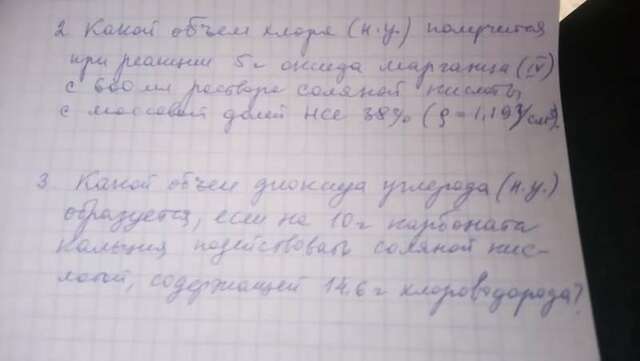 2. Какой объем хлора (н.у.) получится
при реакции 5 г оксида марганца (IV)
с 600 мл раствора соляной кислоты
с массовой долей HCl 38% (ρ = 1,19 г/см³).
3 Какой объем диоксида углерода (н.у.)
образуется, если на 10 г карбоната
кальция подействовать соляной кис-
лотой, содержащей 14.6 г хлороводорода?